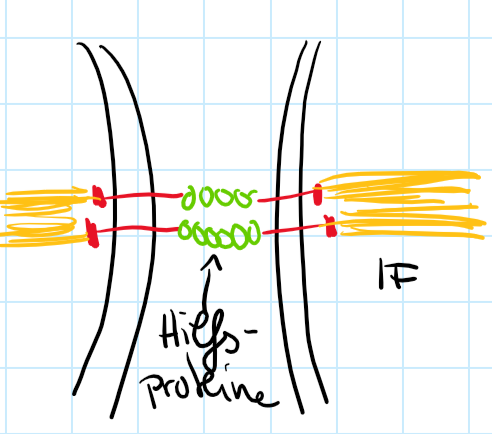 IF
Hilfs-
proteine